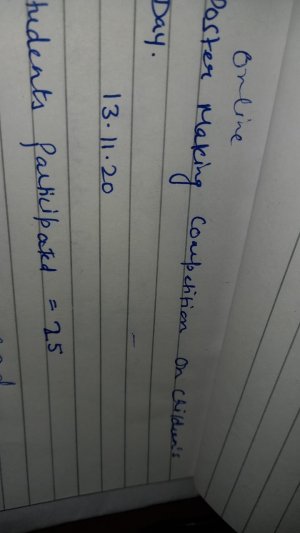 Online
Poster Making Competition on Children's
Day.
13.11.20
tudents Participated = 25